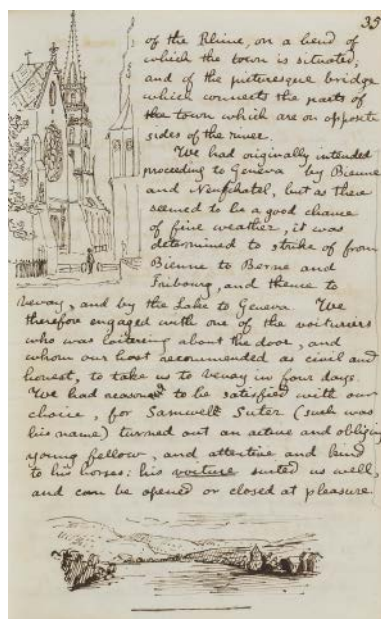 35
of the Rhine, on a bend of
which the town is situated,
and of the picturesque bridge
which connects the parts of
the town which are on opposite
sides of the river.
We had originally intended
proceeding to Geneva by Bienne
and Neufchatel, but as there
seemed to be a good chance
of fine weather, it was
determined to strike of from
Bienne to Berne and
Fribourg, and thence to
Vevay, and by the Lake to Geneva. We
therefore engaged with one of the voituriers
who was loitering about the door, and
whom our host recommended as civil and
honest, to take us to Vevay in four days.
We had reason to be satisfied with our
choice, for Samwell Suter (such was
his name) turned out an active and obliging
young fellow, and attentive and kind
to his horses: his voiture suited us well,
and can be opened or closed at pleasure.